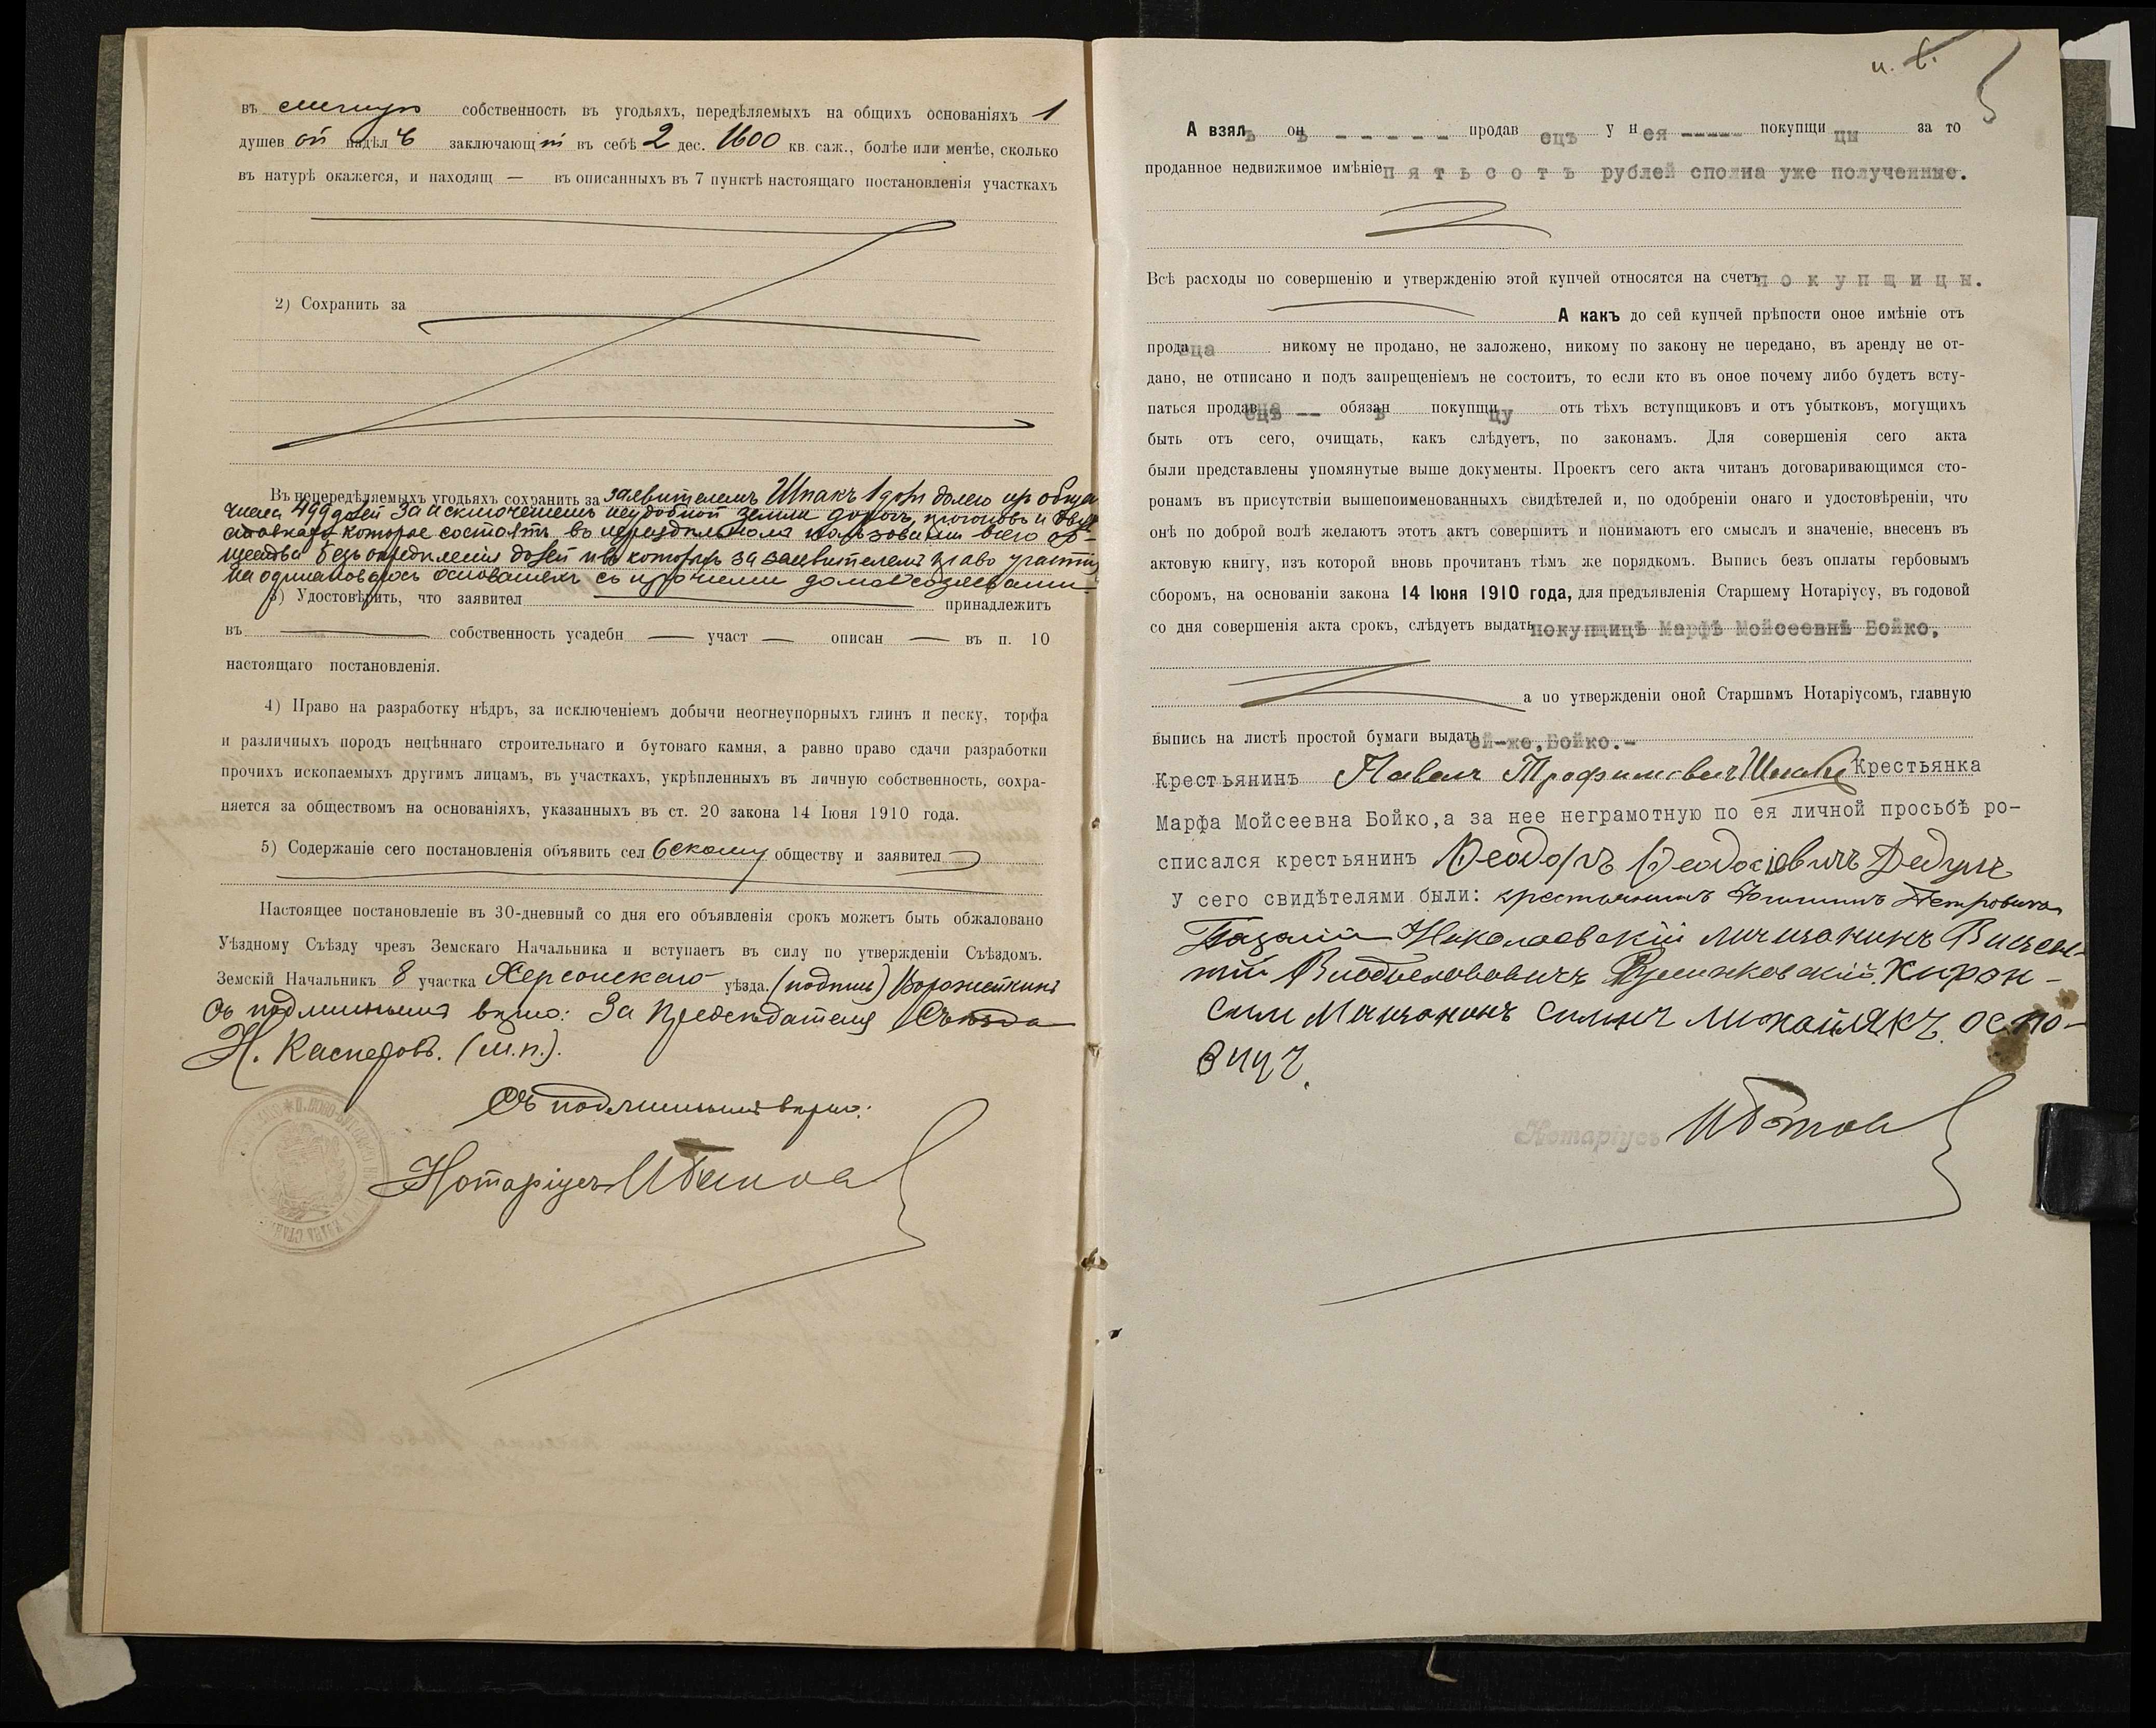 въ личную собственность въ угодьяхъ, передѣляемыхъ на общихъ основаніяхъ 1
душев ой надѣл ъ заключающ ій въ себѣ 2 дес. 1600 кв. саж., болѣе или менѣе, сколько
въ натурѣ окажется, и находящ — въ описанныхъ въ 7 пунктѣ настоящаго постановленія участкахъ
2) Сохранить за
Въ непередѣляемыхъ угодьяхъ сохранить за заявителемъ Шпакъ 1 долю изъ общаго
числа 499 долей за исключеніемъ неудобной земли дорогъ, прогоновъ и
которое состоятъ въ нераздѣльномъ пользованіи всего об-
щества безъ опредѣленія долей и въ которыхъ за заявителемъ право участія
на одинаковыхъ основаніяхъ съ прочими домохозяевами
3) Удостовѣрить, что заявител принадлежитъ
въ — собственность усадебн — участ — описан — въ п. 10
настоящаго постановленія.
4) Право на разработку нѣдръ, за исключеніемъ добычи неогнеупорныхъ глинъ и песку, торфа
и различныхъ породъ нецѣннаго строительнаго и бутоваго камня, а равно право сдачи разработки
прочихъ ископаемыхъ другимъ лицамъ, въ участкахъ, укрѣпленныхъ въ личную собственность, сохра-
няется за обществомъ на основаніяхъ, указанныхъ въ ст. 20 закона 14 Іюня 1910 года.
5) Содержаніе сего постановленія объявить сел ьскому обществу и заявител
Настоящее постановленіе въ 30-дневный со дня его объявленія срокъ можетъ быть обжаловано
Уѣздному Съѣзду чрезъ Земскаго Начальника и вступаетъ въ силу по утвержденіи Съѣздомъ.
Земскій Начальникъ 8 участка Херсонскаго уѣзда. (подпись) Ворожейкинъ
Съ подлиннымъ вѣрно: За Предсѣдателя Съѣзда
Н. Касперовъ. (м.п.).
Съ подлиннымъ вѣрно:
Нотаріусъ
5
А взялъ онъ - - - - - - продав ецъ у нея ----- покупщи цы за то
проданное недвижимое имѣніе п я т ь с о т ъ рублей сполна уже полученные.
Всѣ расходы по совершенію и утвержденію этой купчей относятся на счетъ п о к у п щ и ц ы.
А какъ до сей купчей прѣпости оное имѣніе отъ
продавца никому не продано, не заложено, никому по закону не передано, въ аренду не от-
дано, не отписано и подъ запрещеніемъ не состоитъ, то если кто въ оное почему либо будетъ всту-
паться продавецъ -- обязанъ покупщицу отъ тѣхъ вступщиковъ и отъ убытковъ, могущихъ
быть отъ сего, очищать, какъ слѣдуетъ, по законамъ. Для совершенія сего акта
были представлены упомянутые выше документы. Проектъ сего акта читанъ договаривающимся сто-
ронамъ въ присутствіи вышепоименованныхъ свидѣтелей и, по одобреніи онаго и удостовѣреніи, что
онѣ по доброй волѣ желаютъ этотъ актъ совершить и понимаютъ его смыслъ и значеніе, внесенъ въ
актовую книгу, изъ которой вновь прочитанъ тѣмъ же порядкомъ. Выпись безъ оплаты гербовымъ
сборомъ, на основаніи закона 14 Іюня 1910 года, для предъявленія Старшему Нотаріусу, въ годовой
со дня совершенія акта срокъ, слѣдуетъ выдать покупщицѣ Марфѣ Мойсеевнѣ Бойко,
а по утвержденіи оной Старшимъ Нотаріусомъ, главную
выпись на листѣ простой бумаги выдать ей-же, Бойко.-
Крестьянинъ Павелъ Трофимовичъ Шпакъ Крестьянка
Марфа Мойсеевна Бойко,а за нее неграмотную по ея личной просьбѣ ро-
списался крестьянинъ Ѳеодоръ Ѳеодосіевичъ Дедулъ
У сего свидѣтелями были: крестьянинъ Филиппъ Петровичъ
Николаевскій мѣщанинъ Викен-
тій
мѣщанинъ
Нотаріусъ